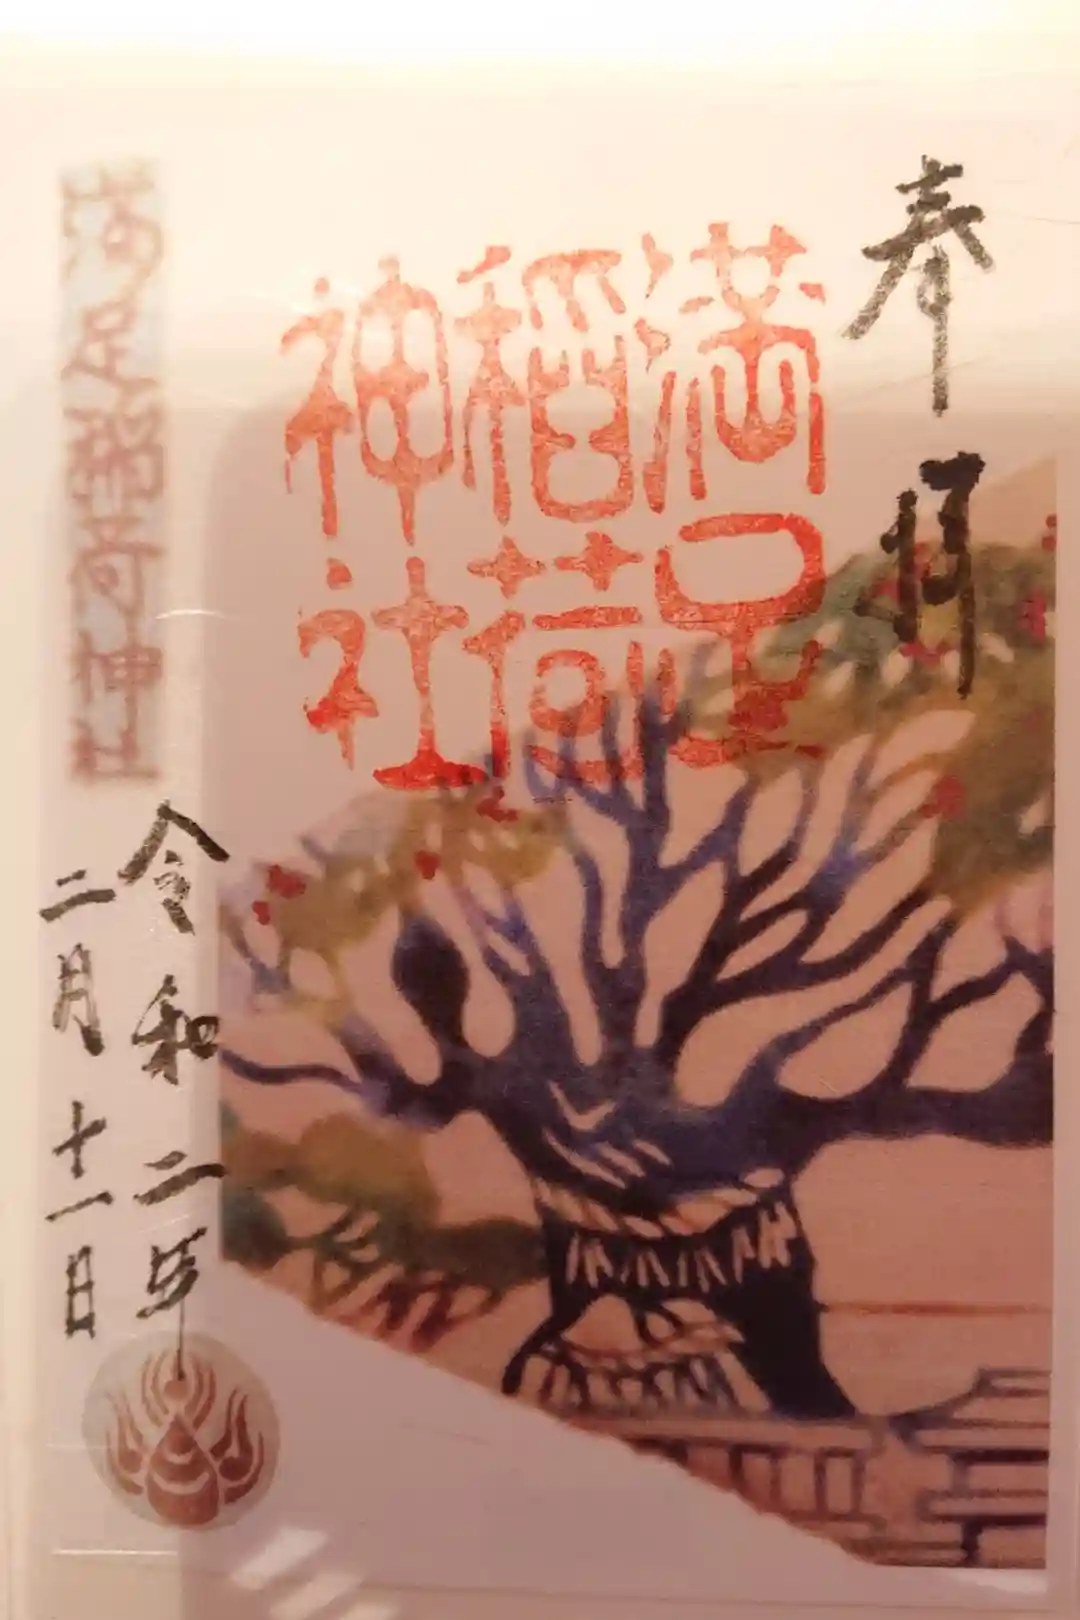 奉拝
満足
稲荷
神社
令和二年
二月十一日
満足稲荷神社